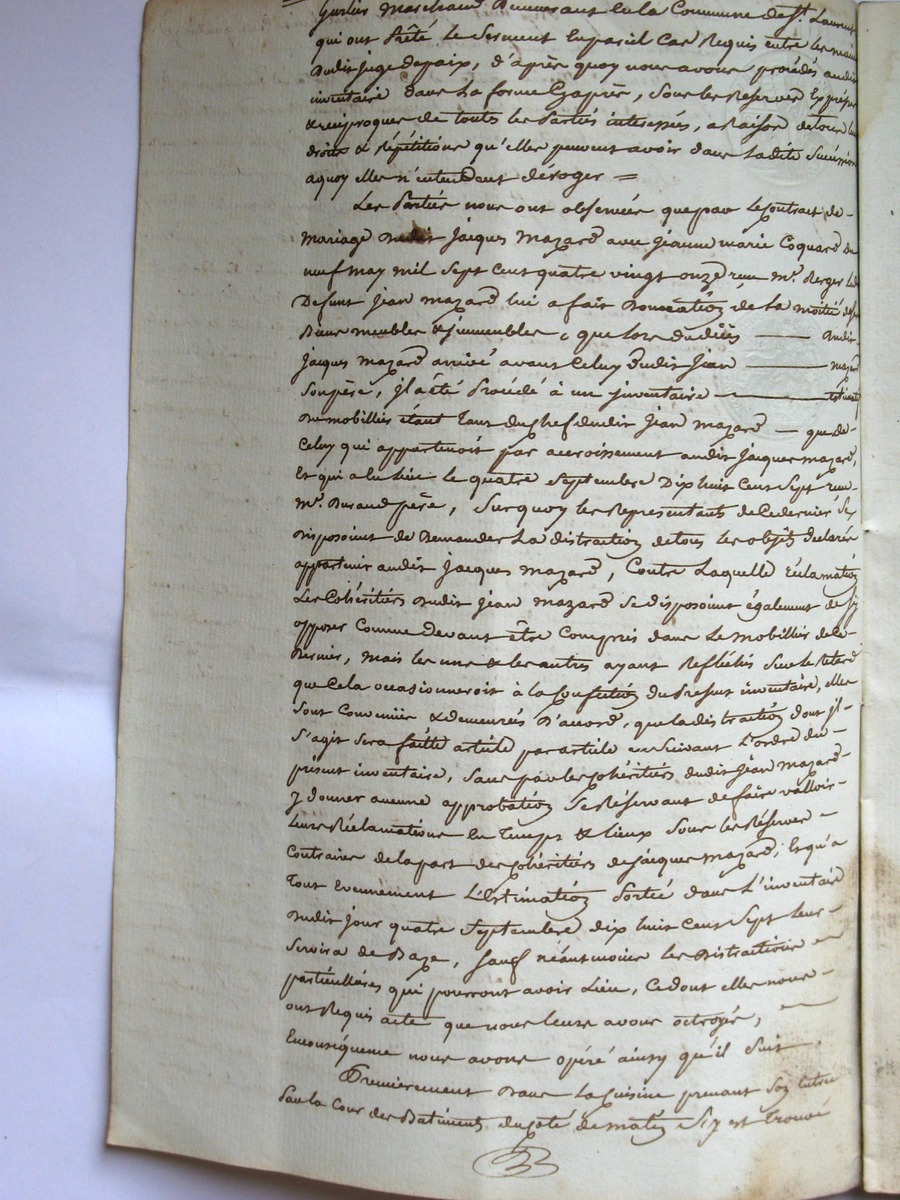 Marchand Demeurant en la Commune de St. Laurent
qui ont Prêté le Serment En pareil Cas Requis entre les mains
Dudit juge de paix, d'après quoy nous avons procédés audit
inventaire dans la forme Cy après, sous les Reserves Expresses
& reciproques de toutes les Parties interessés, a Raison de tous les
droits & Répétitions qu'elles peuvent avoir dans ladite Succession
aquoy elles n'entendent déroger =
Les Parties nous ont observées que par le Contrat de -
Mariage Dudit Jacques Mazard avec Jeanne marie Coquard Du
neuf may mil Sept Cent quatre vingt onze reçu Me. Berger led
Defunt Jean Mazard lui a fait Donnation de la moitié de ses
Biens meubles & immeubles, que lors du décès —— Dudit
Jacques Mazard arrivé avant Celuy Dudit Jean —— Mazard
Son père, il a été Procédé à un inventaire ——
Du mobillier étant Tant du Chef dudit Jean Mazard — que de -
Celuy qui appartenoit par accroissement audit Jacques Mazard,
Et qui a eu lieu le quatre Septembre Dix huit Cent Sept reçu
Me. Durand père, Surquoy les Representants de Ce dernier Se
Disposoient de Demander La distraction de tous les objets déclarés
appartenir audit Jacques Mazard, Contre Laquelle Réclamation
Les Cohéritiers Dudit Jean Mazard Se disposoient également de s'y
opposer Comme devant être Compris dans le Mobillier de Ce
Dernier, Mais les uns & les autres ayant Refléchis Sur le Retard
que Cela occasionneroit à la Confection du Present inventaire, elles
Sont Convenües & demeurées D'accord, que la distraction dont il -
S'agit Sera faitte article par article en Suivant L'ordre du -
présent inventaire, Sans par les Cohéritiers dudit Jean Mazard -
y donner aucune approbation Se Réservant de faire valloir -
Leurs Réclamations En Temps & lieux Sous les Réserves -
Contraires de la part des Cohéritiers de Jacques Mazard, Et qu'a
Tout Evennement L'Estimation Portée dans L'inventaire
Dudit jour quatre Septembre dix huit Cent Sept leur -
Servira de Baze, Sauf néantmoins les Distractions —
particullières qui pourront avoir Lieu, Ce dont elles nous -
ont Requis acte que nous leurs avons octroyé, —
En Conséquence nous avons opéré ainsy qu'il Suit.
Premierement Dans La Cuisine prenant Son entrée
Par la Cour des Batiments du Coté de matin S'y est Trouvé